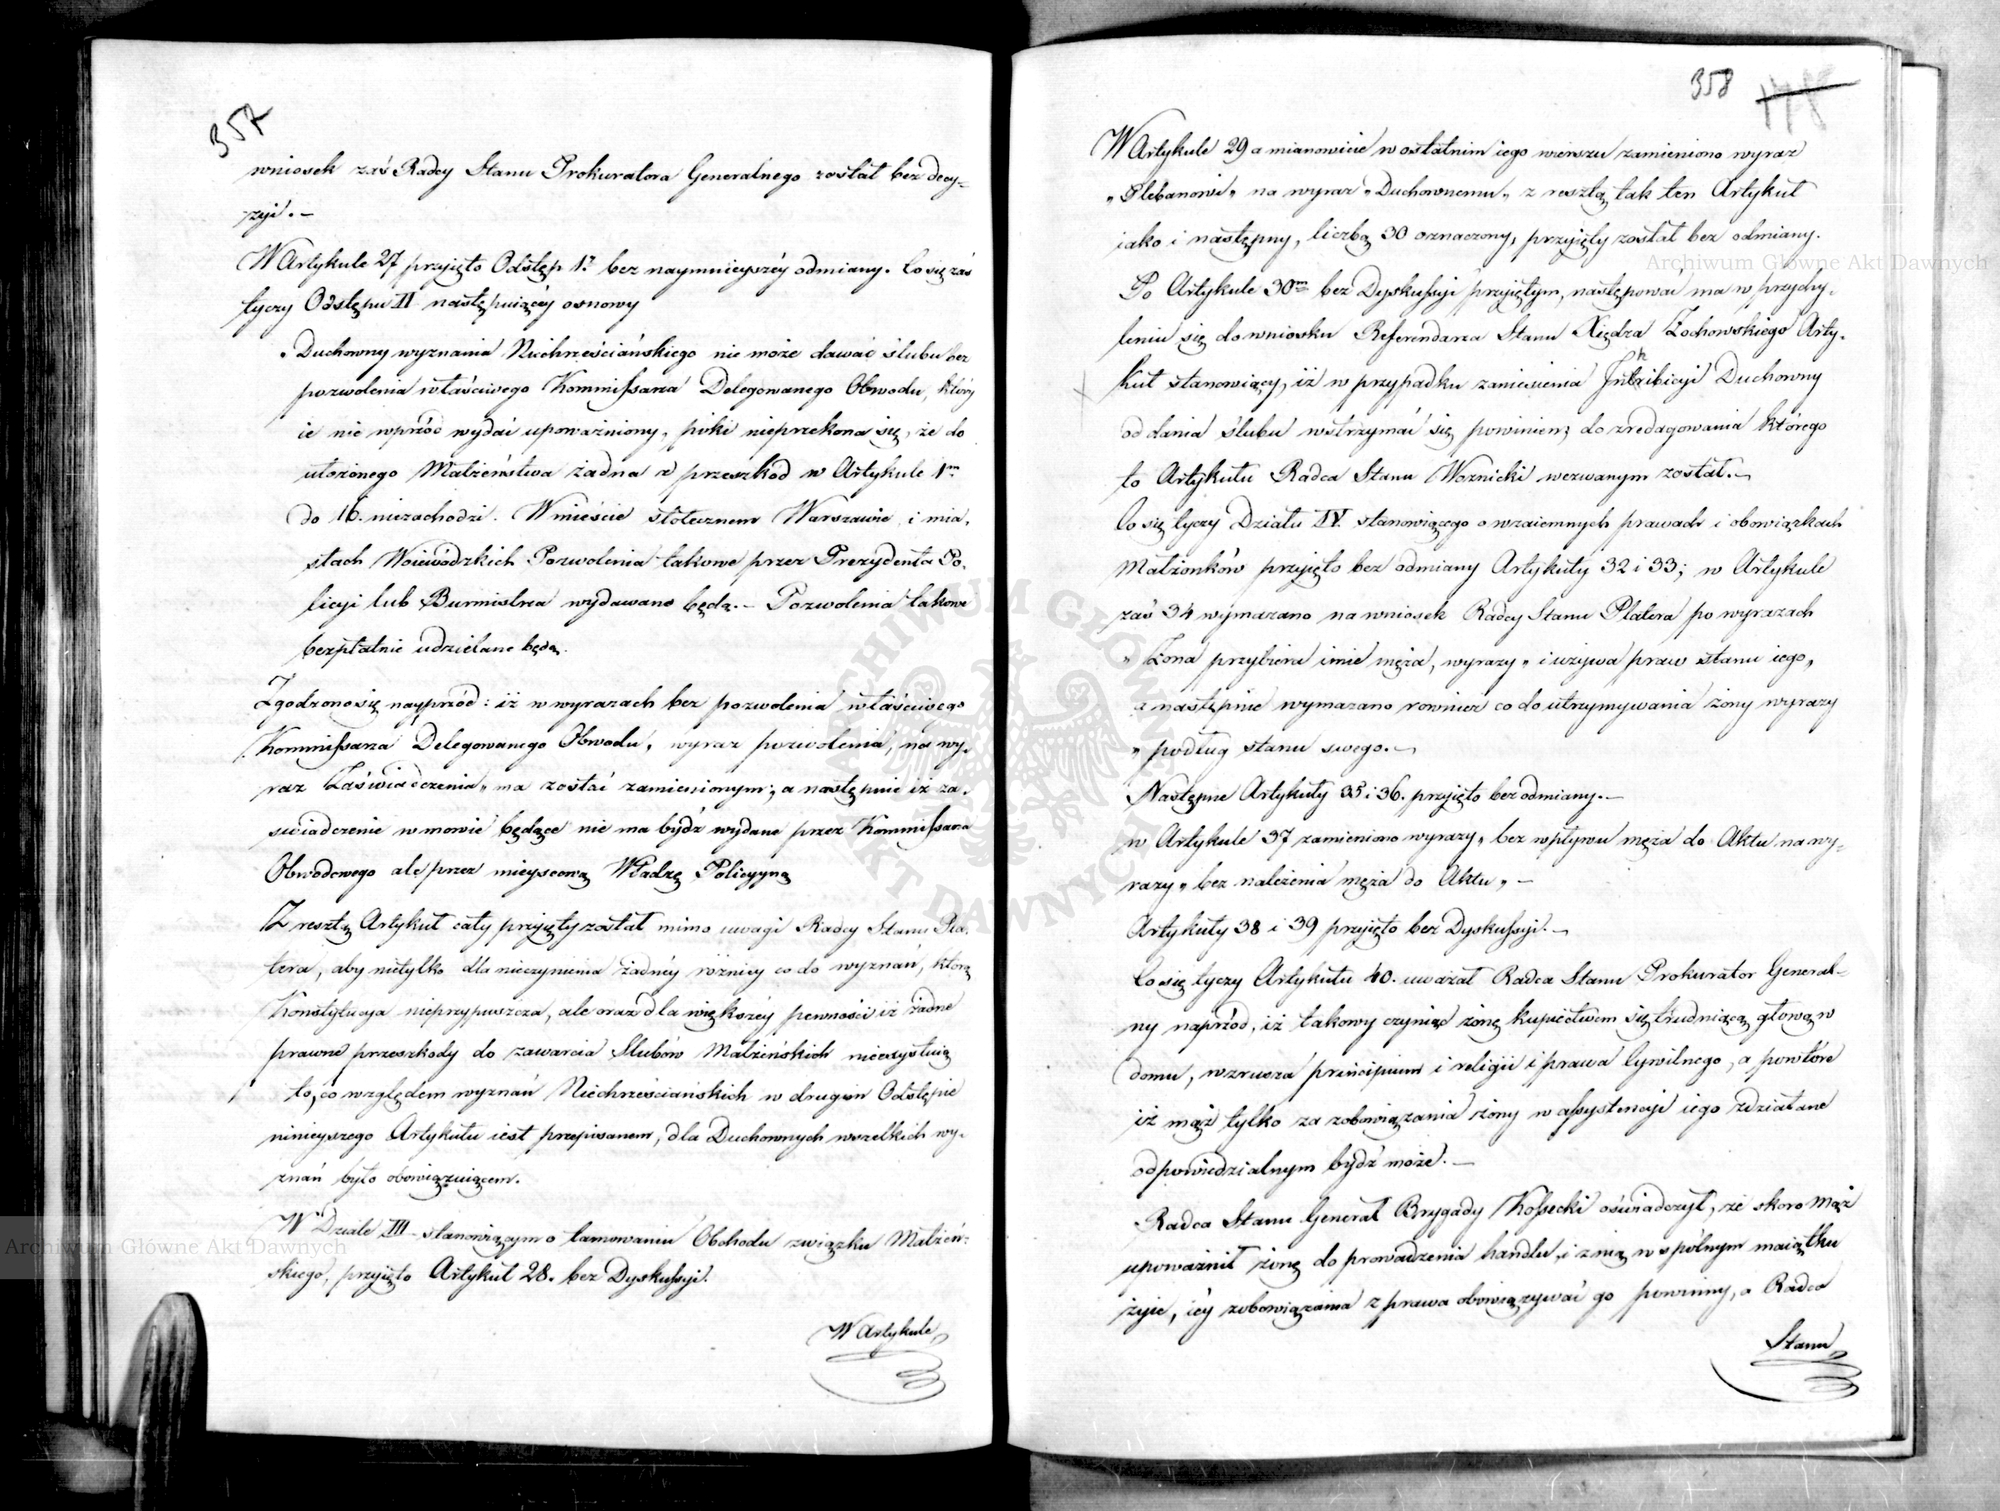 357
wniosek zaś Radcy Stanu Prokuratora Generalnego został bez decy-
zyi. –
W Artykule 27 przyięto Odstęp 1y bez naymnieyszéy odmiany. Co się zaś
tyczy Odstępu II następuiącéy osnowy
„Duchowny wyznania Niechrześciańskiego nie może dawać ślubu bez
pozwolenia właściwego Kommissarza Delegowanego Obwodu, który
ie nie wprzód wydać upoważniony, póki nieprzekona się, że do
ułożonego Małżeństwa żadna z przeszkód w Artykule 1m
do 16. niezachodzi. W mieście stołecznem Warszawie i mia-
stach Woiewódzkich Pozwolenia takowe przez Prezydenta Po-
licyi lub Burmistrza wydawane będą. – Pozwolenia takowe
bezpłatnie udzielane będą.
Zgodzono się nayprzód: iż w wyrazach bez pozwolenia właściwego
Kommissarza Delegowanego Obwodu, wyraz pozwolenia, na wy-
raz Zaświadczenia„ ma zostać zamienionym; a następnie iż za-
świadczenie w mowie będące nie ma bydź wydane przez Kommissarza
Obwodowego ale przez mieyscową Władzę Policyyną
Z resztą Artykuł cały przyięty został mimo uwagi Radcy Stanu Pla-
tera, aby nietylko dla nieczynienia żadnéy różnicy co do wyznań, którą
Konstytucya nieprzypuszcza, ale oraz dla większéy pewności iż żadne
prawne przeszkody do zawarcia Ślubów Małżeńskich nieexystuią
to, co względem wyznań Niechrześciańskich w drugim Odstępie
ninieyszego Artykułu iest przepisanem, dla Duchownych wszelkich wy-
znań było obowiązuiącem.
W Dziale III stanowiącym o tamowaniu Obchodu związku Małżeń-
skiego, przyięto Artykuł 28. bez Dyskussyi.
W Artykule
358
W Artykule 29 a mianowicie w ostatnim iego wierszu zamieniono wyraz
„Plebanowi„ na wyraz „Duchownemu„ z resztą tak ten Artykuł
iako i następny, liczbą 30 oznaczony, przyięty został bez odmiany.
Po Artykule 30m bez Dyskussyi przyiętym, następować ma w przychy-
leniu się do wniosku Referendarza Stanu Xiędza Żochowskiego Arty-
kuł stanowiący, iż w przypadku zaniesienia Inhibicyi Duchowny
od dania ślubu wstrzymać się powinien; do zredagowania którego
to Artykułu Radca Stanu Woźnicki wezwanym został. –
Co się tyczy Działu IV. stanowiącego o wzaiemnych prawach i obowiązkach
Małżonków przyięto bez odmiany Artykuły 32 i 33; w Artykule
zaś 34 wymazano na wniosek Radcy Stanu Platera po wyrazach
„Żona przybiera imie męża, wyrazy „i używa praw stanu iego„
a następnie wymazano rownież co do utrzymywania żony wyrazy
„podług stanu swego. –
Następne Artykuły 35 i 36. przyięto bez odmiany. –
w Artykule 37 zamieniono wyrazy „bez wpływu męża do Aktu na wy-
razy „bez należenia męża do Aktu„ –
Artykuły 38 i 39 przyięto bez Dyskussyi. –
Co się tyczy Artykułu 40. uważał Radca Stanu Prokurator General-
ny naprzód, iż takowy czyniąc żonę kupiectwem się trudniącą głową w
domu, wzrusza principium i religii i prawa Cywilnego, a powtóre
iż mąż tylko za zobowiązania żony w assystencyi iego zdziałane
odpowiedzialnym bydź może. –
Radca Stanu Generał Brygady Kossecki oświadczył, że skoro Mąż
upoważnił żonę do prowadzenia handlu, i z nią w spólnym maiątku
żyie, iéy zobowiązania z prawa obowiązywać go powinny, a Radca
Stanu
Archiwum Główne Akt Dawnych
Archiwum Główne Akt Dawnych
ARCHIWUM GŁÓWNE AKT DAWNYCH